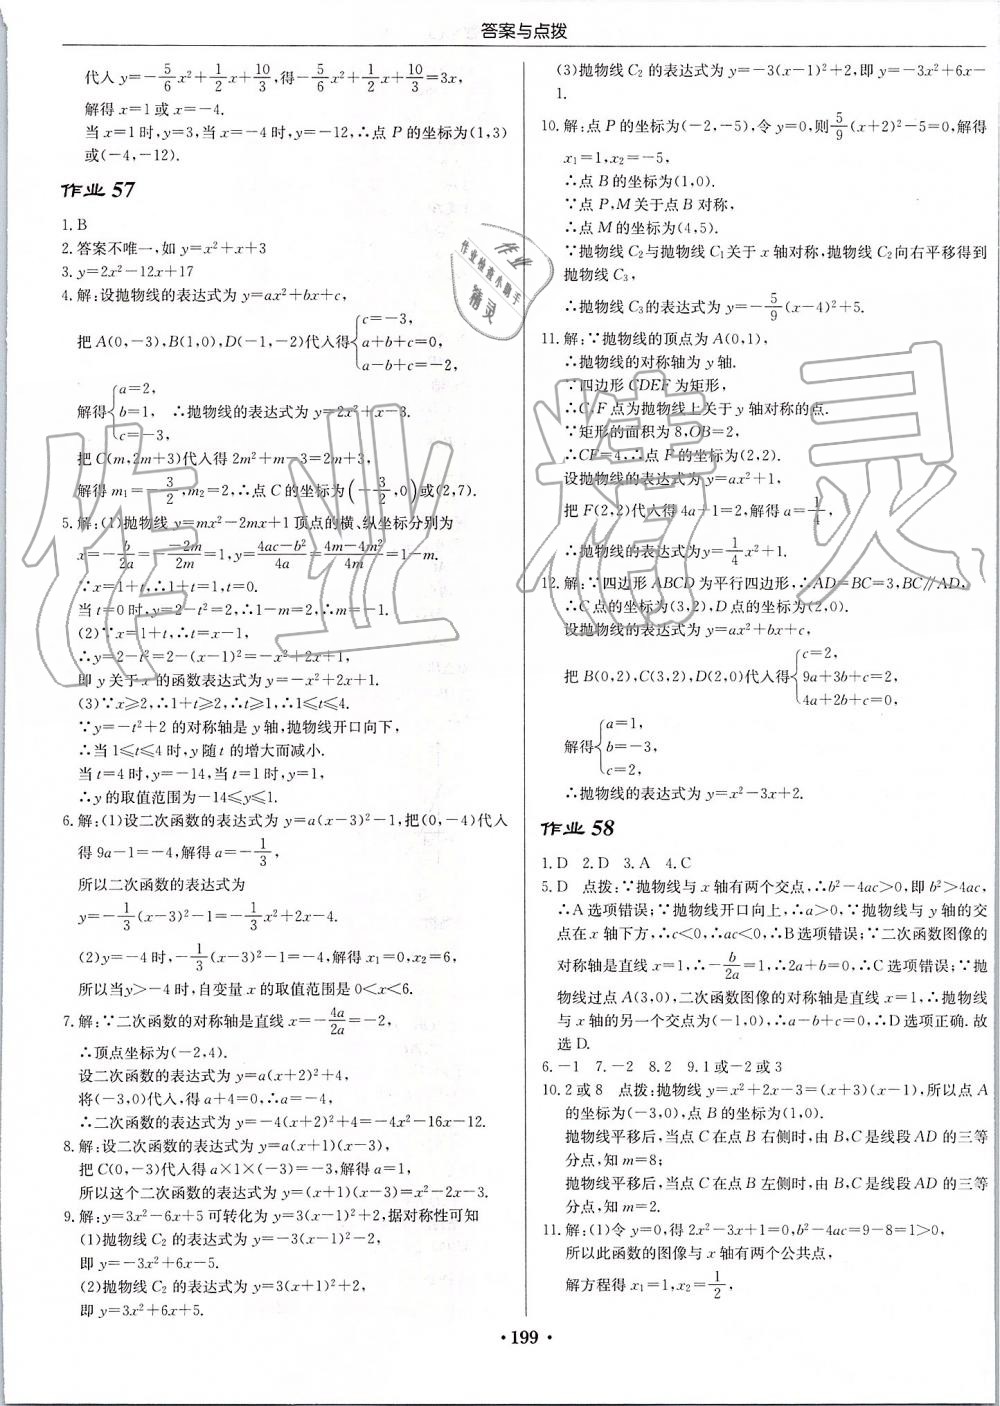 答案与点拨
代入 y=-5/6x²+1/2x+10/3,得-5/6x²+1/2x+10/3=3x,
解得 x=1 或 x=-4.
当 x=1 时,y=3,当 x=-4 时,y=-12,∴点 P 的坐标为(1,3)
或(-4,-12).
作业 57
1. B
2. 答案不唯一,如 y=x²+x+3
3. y=2x²-12x+17
4. 解:设抛物线的表达式为 y=ax²+bx+c,
把 A(0,-3),B(1,0),D(-1,-2)代入得{c=-3, a+b+c=0, a-b+c=-2,
解得{a=2, b=1, c=-3, ∴抛物线的表达式为 y=2x²+x-3.
把 C(m,2m+3)代入得 2m²+m-3=2m+3,
解得 m₁=-3/2,m₂=2,∴点 C 的坐标为(-3/2,0)或(2,7).
5. 解:(1)抛物线 y=mx²-2mx+1 顶点的横、纵坐标分别为
x=-b/2a=-(-2m)/2m=1,y=(4ac-b²)/4a=(4m-4m²)/4m=1-m.
∵x=1+t,∴1+t=1,∴t=0.
当 t=0 时,y=2-t²=2,∴1-m=2,∴m=-1.
(2)∵x=1+t,∴t=x-1,
∴y=2-t²=2-(x-1)²=-x²+2x+1,
即 y 关于 x 的函数表达式为 y=-x²+2x+1.
(3)∵x≥2,∴1+t≥2,∴t≥1,∴1≤t≤4.
∵y=-t²+2 的对称轴是 y 轴,抛物线开口向下,
∴当 1≤t≤4 时,y 随 t 的增大而减小.
当 t=4 时,y=-14,当 t=1 时,y=1,
∴y 的取值范围为-14≤y≤1.
6. 解:(1)设二次函数的表达式为 y=a(x-3)²-1,把(0,-4)代入
得 9a-1=-4,解得 a=-1/3,
所以二次函数的表达式为
y=-1/3(x-3)²-1=-1/3x²+2x-4.
(2)y=-4 时,-1/3(x-3)²-1=-4,解得 x₁=0,x₂=6,
所以当y>-4 时,自变量 x 的取值范围是 0<x<6.
7. 解:∵二次函数的对称轴是直线 x=-4a/2a=-2,
∴顶点坐标为(-2,4).
设二次函数的表达式为 y=a(x+2)²+4,
将(-3,0)代入,得 a+4=0,∴a=-4,
∴二次函数的表达式为 y=-4(x+2)²+4=-4x²-16x-12.
8. 解:设二次函数的表达式为 y=a(x+1)(x-3),
把 C(0,-3)代入得 a×1×(-3)=-3,解得 a=1,
所以这个二次函数的表达式为 y=(x+1)(x-3)=x²-2x-3.
9. 解:y=3x²-6x+5 可转化为 y=3(x-1)²+2,据对称性可知
(1)抛物线 C₂ 的表达式为 y=-3(x-1)²-2,
即 y=-3x²+6x-5.
(2)抛物线 C₂ 的表达式为 y=3(x+1)²+2,
即 y=3x²+6x+5.
(3)抛物线 C₂ 的表达式为 y=-3(x-1)²+2,即 y=-3x²+6x-
1.
10. 解:点 P 的坐标为(-2,-5),令 y=0,则5/9(x+2)²-5=0,解得
x₁=1,x₂=-5,
∴点 B 的坐标为(1,0).
∵点 P,M 关于点 B 对称,
∴点 M 的坐标为(4,5).
∵抛物线 C₂与抛物线 C₁关于 x 轴对称,抛物线 C₂向右平移得到
抛物线 C₃,
∴抛物线 C₃的表达式为 y=-5/9(x-4)²+5.
11. 解:∵抛物线的顶点为 A(0,1),
∴抛物线的对称轴为 y 轴.
∵四边形 CDEF 为矩形,
∴C、F 点为抛物线上关于 y 轴对称的点.
∵矩形的面积为 8,OB=2,
∴CF=4,∴点 F 的坐标为(2,2).
设抛物线的表达式为 y=ax²+1,
把 F(2,2)代入得 4a+1=2,解得 a=1/4,
∴抛物线的表达式为y=1/4x²+1.
12. 解:∵四边形 ABCD 为平行四边形,∴AD=BC=3,BC∥AD,
∴C 点的坐标为(3,2),D 点的坐标为(2,0).
设抛物线的表达式为 y=ax²+bx+c,
把 B(0,2),C(3,2),D(2,0)代入得{c=2, 9a+3b+c=2, 4a+2b+c=0,
解得{a=1, b=-3, c=2,
∴抛物线的表达式为 y=x²-3x+2.
作业 58
1. D 2. D 3. A 4. C
5. D 点拨:∵抛物线与 x 轴有两个交点,∴b²-4ac>0,即 b²>4ac,
∴A 选项错误;∵抛物线开口向上,∴a>0,∵抛物线与 y 轴的交
点在 x 轴下方,∴c<0,∴ac<0,∴B 选项错误;∵二次函数图像的
对称轴是直线 x=1,∴-b/2a=1,∴2a+b=0,∴C 选项错误;∵抛
物线过点 A(3,0),二次函数图像的对称轴是直线 x=1,∴抛物线
与 x 轴的另一个交点为(-1,0),∴a-b+c=0,∴D 选项正确. 故
选 D.
6. -1 7. -2 8. 2 9. 1 或-2 或 3
10. 2 或 8 点拨:抛物线 y=x²+2x-3=(x+3)(x-1),所以点 A
的坐标为(-3,0),点 B 的坐标为(1,0).
抛物线平移后,当点 C 在点 B 右侧时,由 B、C 是线段 AD 的三等
分点,知 m=8;
抛物线平移后,当点 C 在点 B 左侧时,由 B、C 是线段 AD 的三等
分点,知 m=2.
11. 解:(1)令 y=0,得 2x²-3x+1=0,b²-4ac=9-8=1>0,
所以此函数的图像与 x 轴有两个公共点,
解方程得 x₁=1,x₂=1/2,
· 199 ·
作业精灵
作业
作业检查小助手
精灵